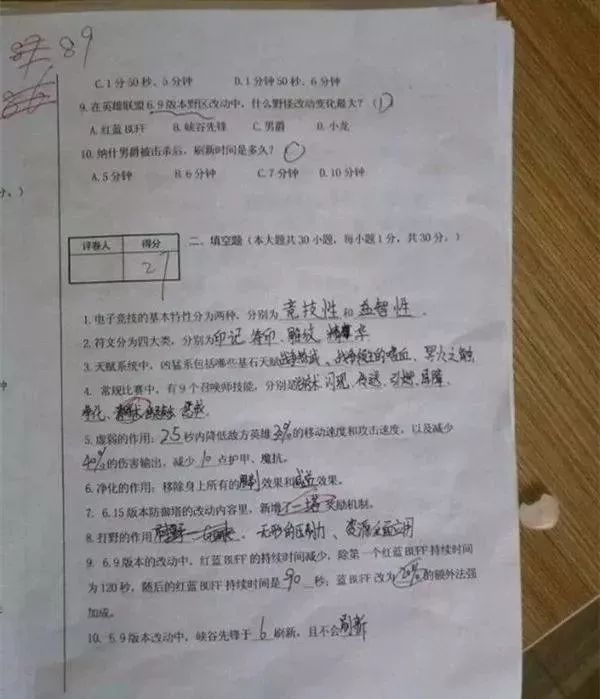 89
C. 1分50秒、5分钟 D. 1分50秒、6分钟
9. 在英雄联盟6.9版本野区改动中，什么野怪改动变化最大？（D）
A. 红蓝BUFF B. 峡谷先锋 C. 男爵 D. 小龙
10. 纳什男爵被击杀后，刷新时间是多久？
A. 5分钟 B. 6分钟 C. 7分钟 D. 10分钟
评卷人 得分
27
二、填空题（本大题共30小题，每小题1分，共30分。）
1. 电子竞技的基本特性分为两种，分别为 竞技性 和 益智性 .
2. 符文分为四大类，分别为印记 符印 雕纹 精华
3. 天赋系统中，凶猛系包括哪些基石天赋战争热诚、战争领主的嗜血、死火之触
4. 常规比赛中，有9个召唤师技能，分别是治疗术 闪现、传送、引燃、屏障、
净化、惩戒
5. 虚弱的作用：2.5秒内降低敌方英雄的移动速度和攻击速度，以及减少
40%的伤害输出，减少10点护甲、魔抗。
6. 净化的作用：移除身上所有的限制效果和减益效果。
7. 6.15版本防御塔的改动内容里，新增了一塔奖励机制。
8. 打野的作用 无形的压制力、资源全面应用
9. 6.9版本的改动中，红蓝BUFF的持续时间减少，除第一个红蓝BUFF持续时间
为120秒，随后的红蓝BUFF持续时间是 90 秒；蓝BUFF改为的额外法强
加成。
10. 5.9版本改动中，峡谷先锋于 6 刷新，且不会刷新